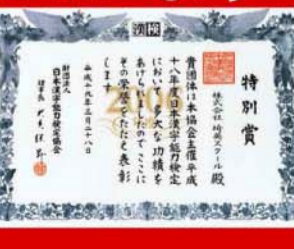 漢検
特別賞
株式会社 崎英スクール 殿
貴団体は本協会主催平成
十八年度日本漢字能力検定
において多大な功績を
あげられたのでここに
その栄誉をたたえ表彰
します
平成十九年三月二十八日
財団法人
日本漢字能力検定協会
理事長
2006